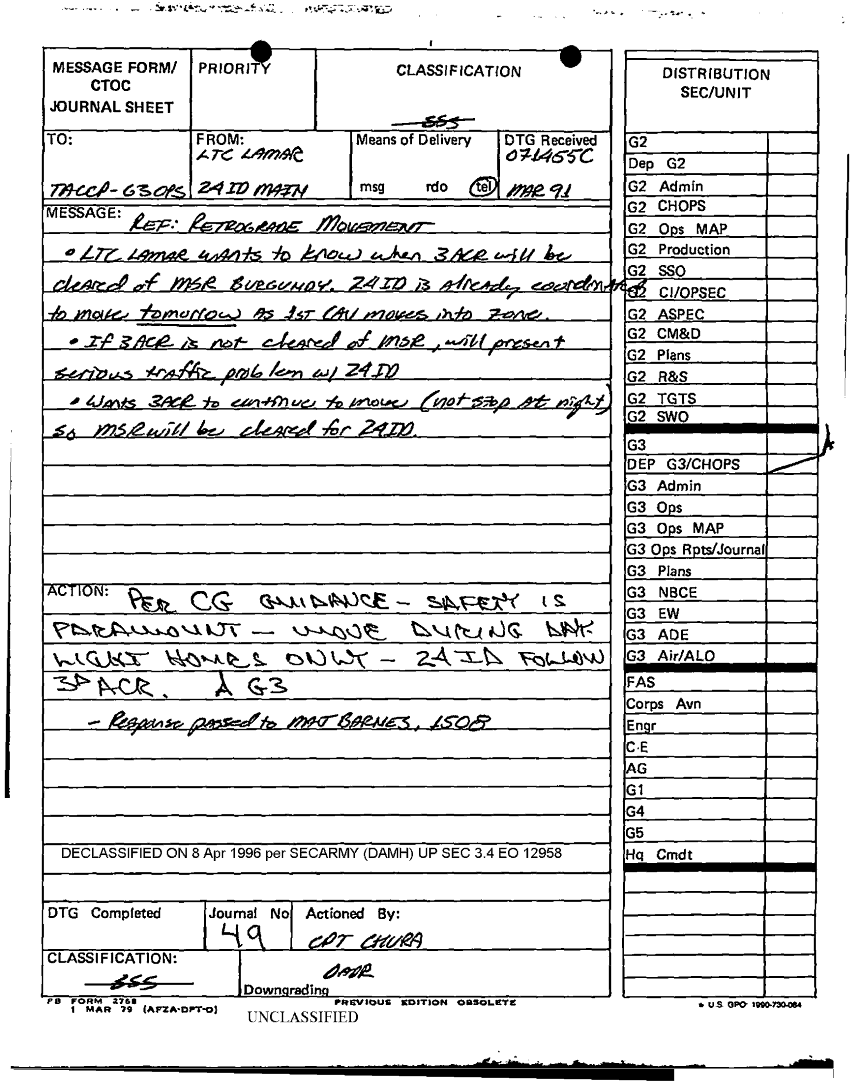 MESSAGE FORM/
CTOC
JOURNAL SHEET
PRIORITY
CLASSIFICATION
SSS
TO:
TACCP-G3 OPS
FROM:
LTC LAMAR
24 ID MAIN
Means of Delivery
msg rdo tel
DTG Received
071455C
MAR 91
MESSAGE: REF: RETROGRADE MOVEMENT
• LTC LAMAR wants to know when 3ACR will be
cleared of MSR BURGUNDY. 24ID is already coordinated
to move tomorrow as 1st CAV moves into zone.
• If 3ACR is not cleared of MSR, will present
serious traffic problem w/ 24ID
• Wants 3ACR to continue to move (not stop at night)
so MSR will be cleared for 24ID.
ACTION: PER CG GUIDANCE - SAFETY IS
PARAMOUNT - MOVE DURING DAY-
LIGHT HOURS ONLY - 24 ID FOLLOW
3D ACR. A G3
- Response passed to MAJ BARNES, 1508
DECLASSIFIED ON 8 Apr 1996 per SECARMY (DAMH) UP SEC 3.4 EO 12958
DTG Completed
Journal No
49
Actioned By:
CPT CHURA
CLASSIFICATION:
SSS
OADR
Downgrading
FB FORM 2768
1 MAR 79 (AFZA-DPT-O)
PREVIOUS EDITION OBSOLETE
UNCLASSIFIED
DISTRIBUTION
SEC/UNIT
G2
Dep G2
G2 Admin
G2 CHOPS
G2 Ops MAP
G2 Production
G2 SSO
G2 CI/OPSEC
G2 ASPEC
G2 CM&D
G2 Plans
G2 R&S
G2 TGTS
G2 SWO
G3
DEP G3/CHOPS
G3 Admin
G3 Ops
G3 Ops MAP
G3 Ops Rpts/Journal
G3 Plans
G3 NBCE
G3 EW
G3 ADE
G3 Air/ALO
FAS
Corps Avn
Engr
C-E
AG
G1
G4
G5
Hq Cmdt
U.S. GPO: 1990-730-084